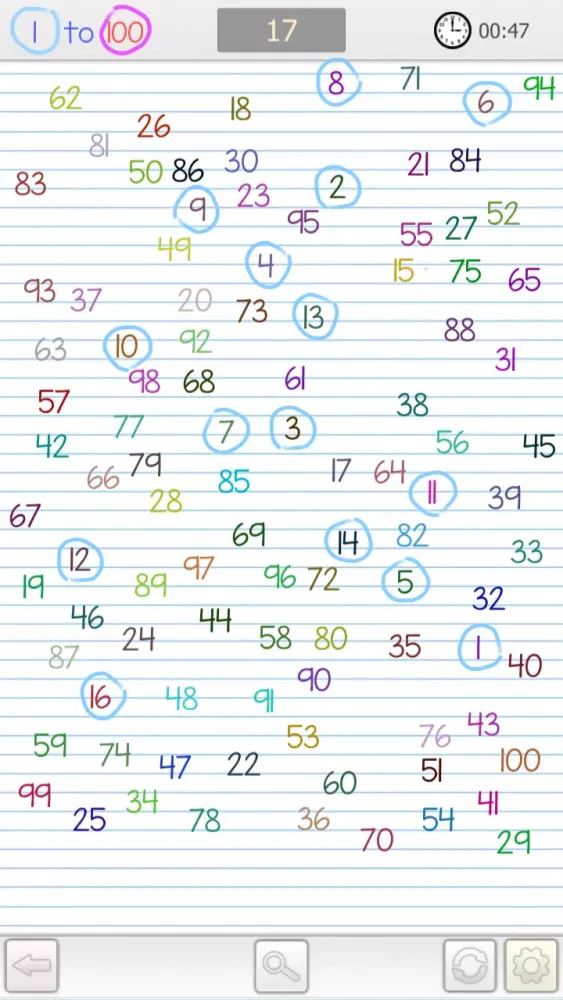 1 to 100 17 00:47
8 71 94
62 18 6
26
81
50 86 30 21 84
83 9 23 2
95 55 27 52
49
4 15 75 65
93 37 20 73 13
88
63 10 92 31
98 68 61
57 38
77 7 3
42 56 45
66 79 85 17 64
28 11 39
67
69 14 82
12 97 33
19 89 96 72 5
32
46 44
24 58 80 35 1
87 40
90
16 48 91
43
59 74 53 76
47 22 51 100
99 60
34 41
25 78 36 54
70 29